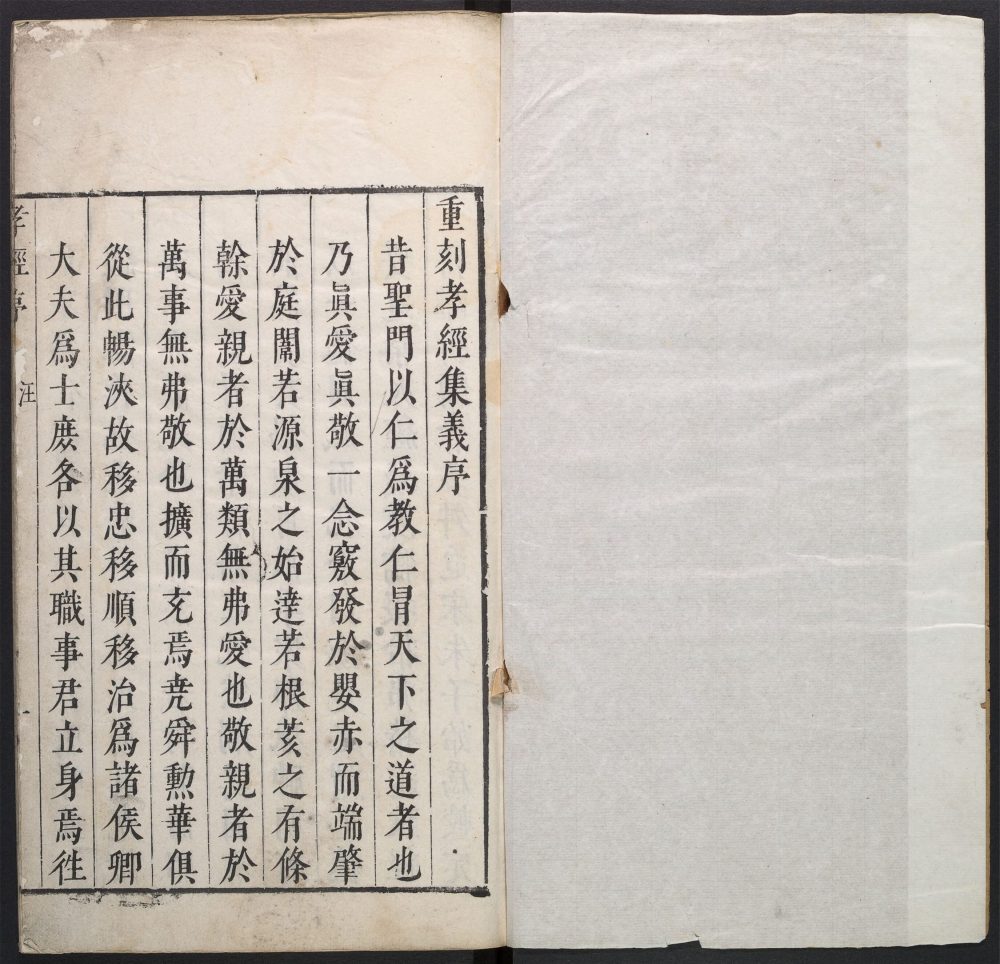 重刻孝經集義序
昔聖門以仁爲教仁冒天下之道者也
乃眞愛眞敬一念竅發於嬰赤而端肇
於庭闈若源泉之始達若根荄之有條
榦愛親者於萬類無弗愛也敬親者於
萬事無弗敬也擴而充焉尭舜勲華俱
從此暢浹故移忠移順移治爲諸侯卿
大夫爲士庶各以其職事君立身焉徃
孝經序 汪 一